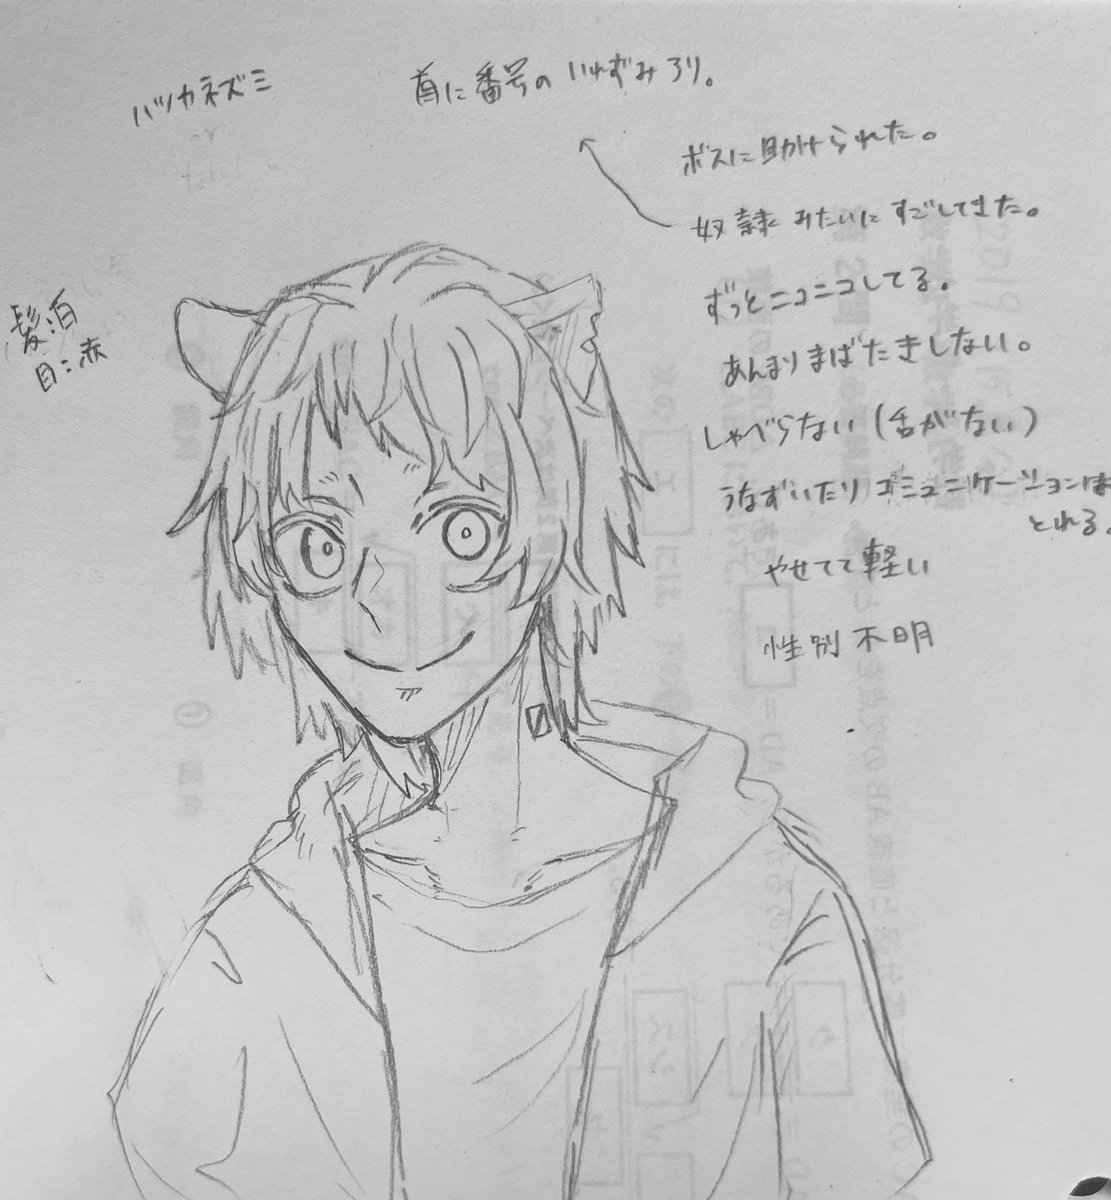 ハツカネズミ
首に番号のいれずみあり。
ボスに助けられた。
奴隷みたいにすごしてきた。
ずっとニコニコしてる。
あんまりまばたきしない。
しゃべらない(舌がない)
うなずいたりコミュニケーションは
とれる。
やせてて軽い
性別不明
髪:白
目:赤